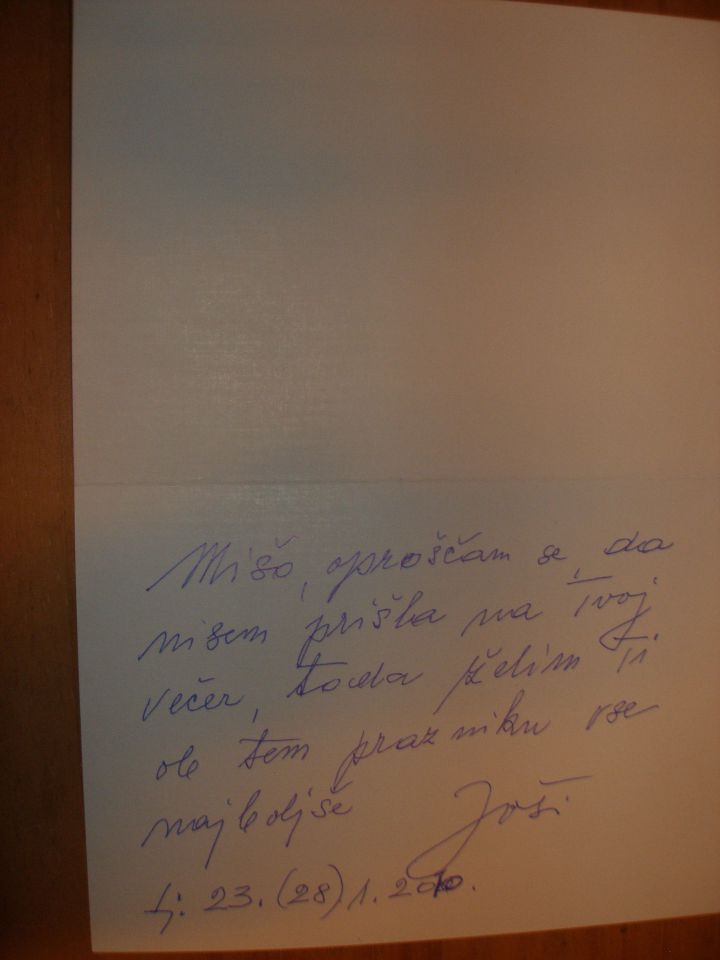 Mišo, oproščam se, da
nisem prišla na Tvoj
večer, toda želim Ti
ob tem prazniku vse
najboljše Joši
Lj. 23. (28) 1. 2010.